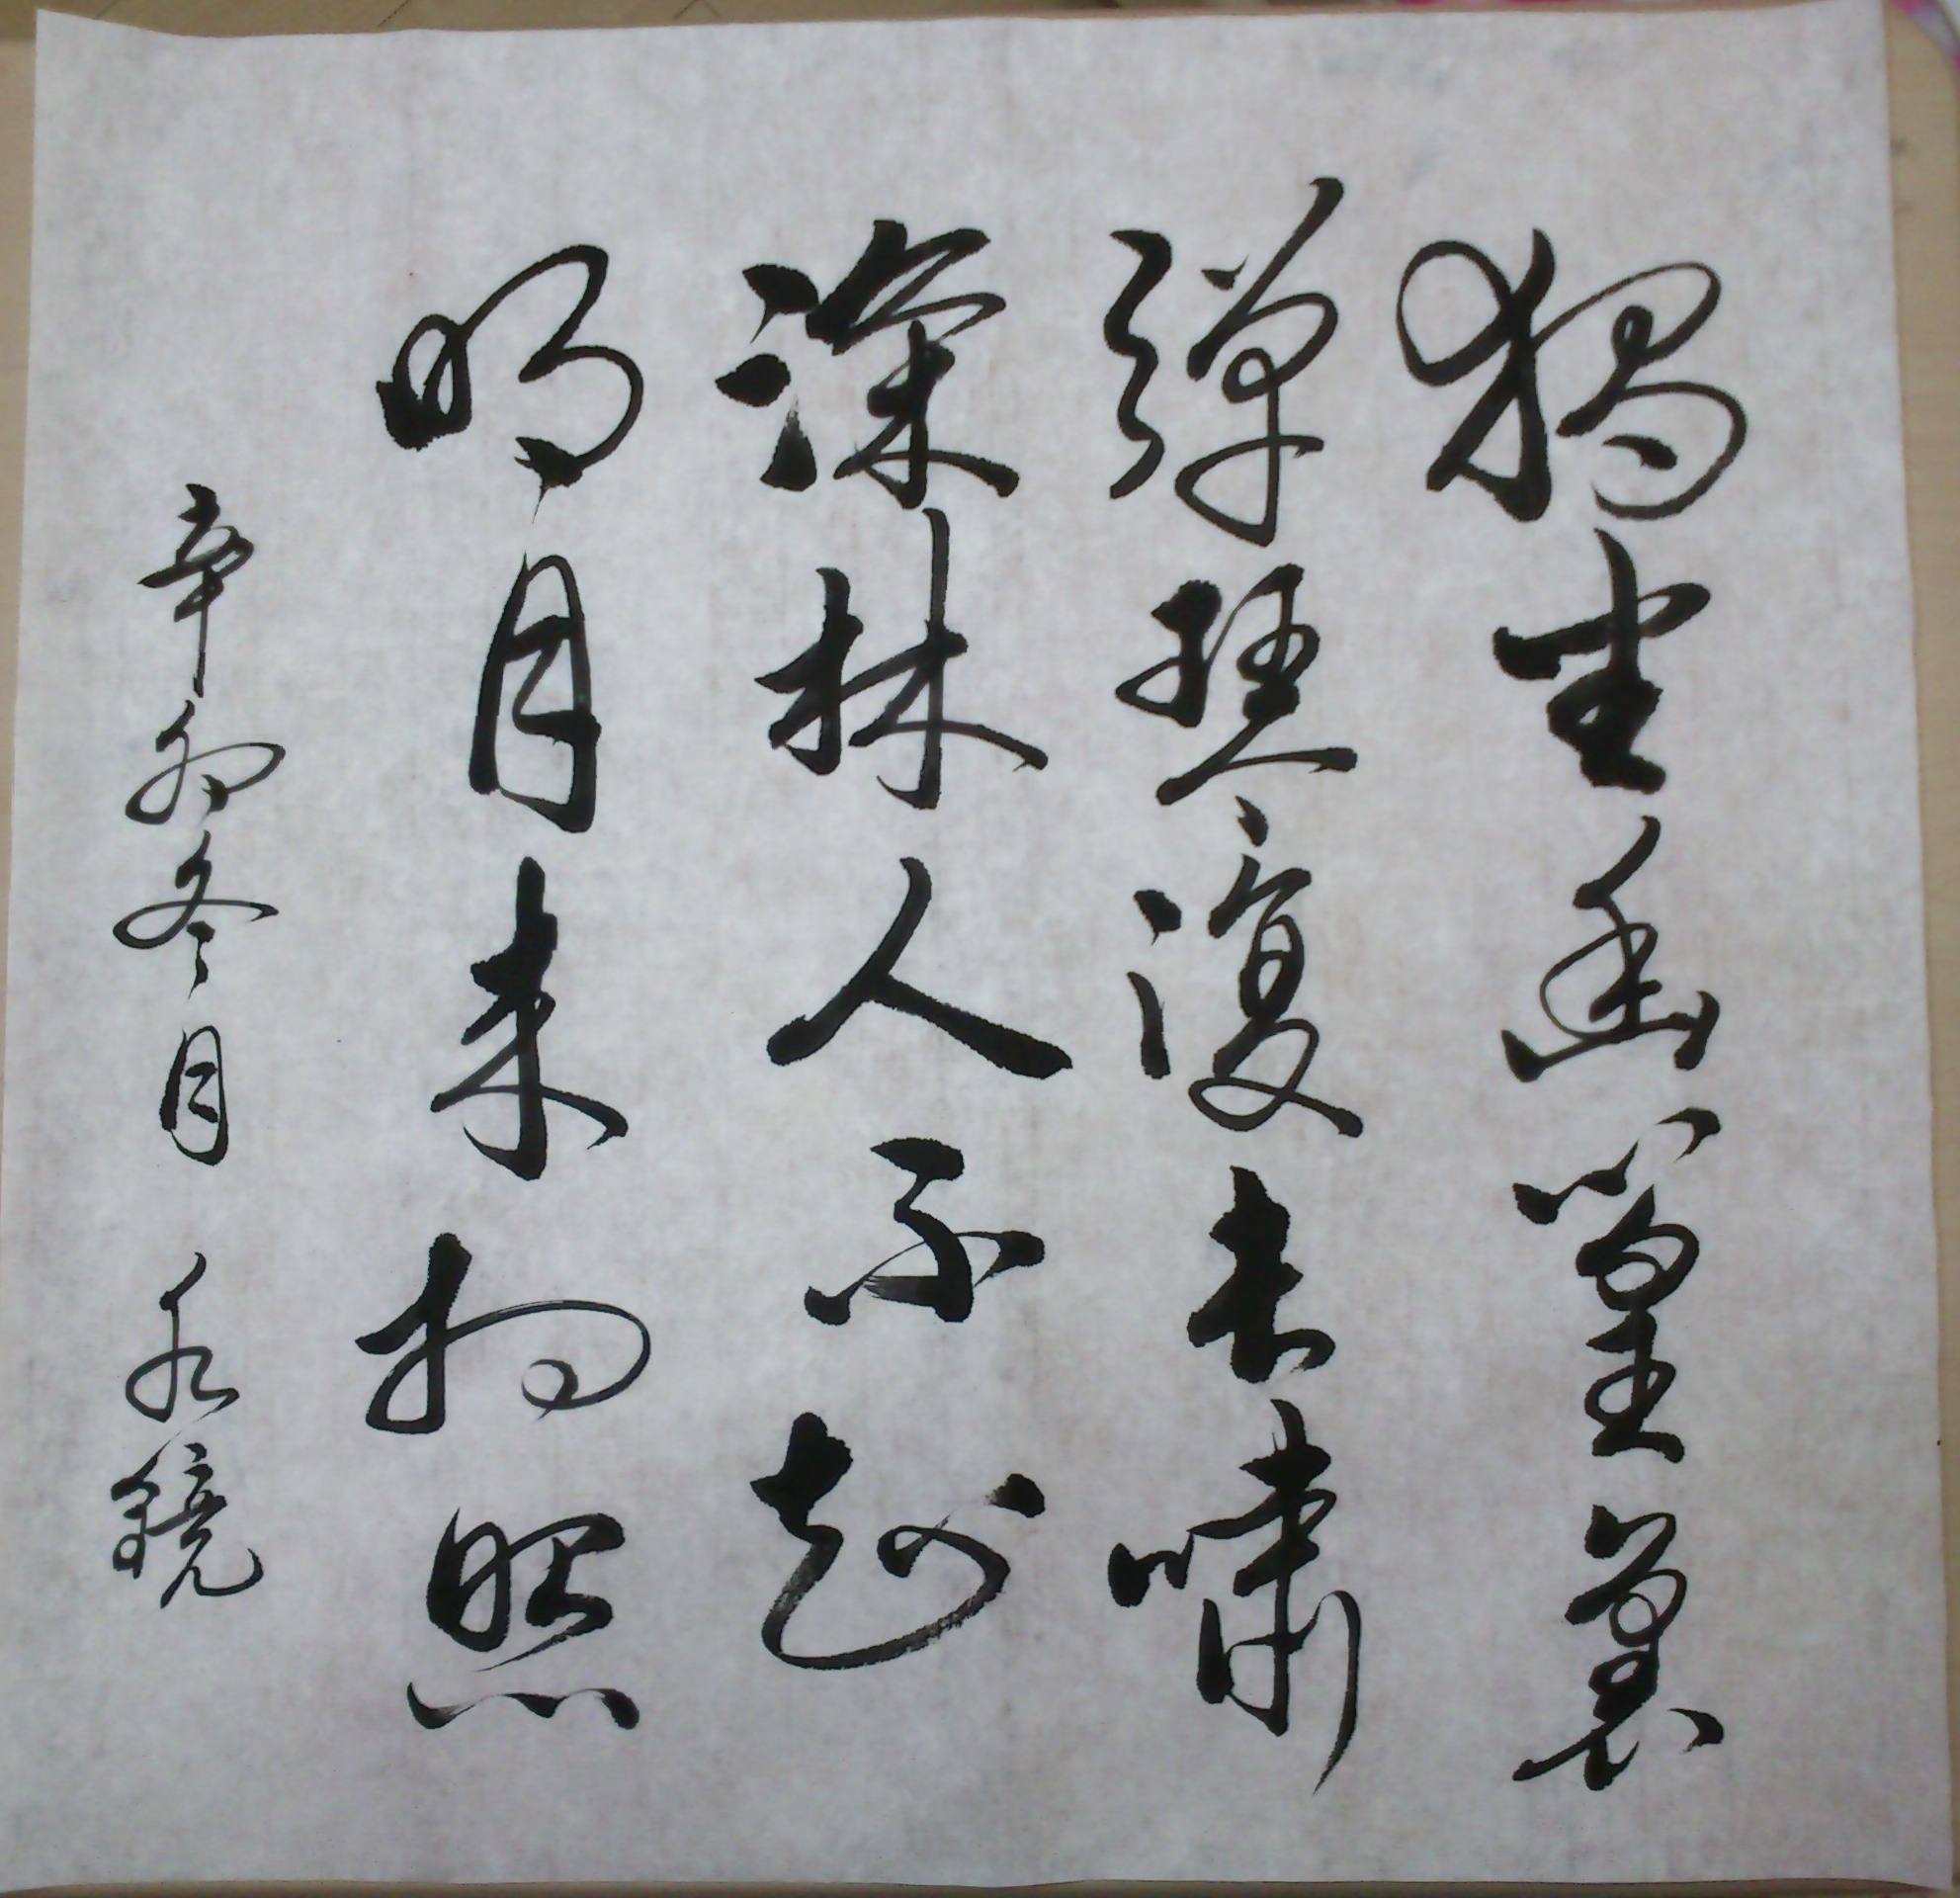 獨坐幽篁裏
彈琴復長嘯
深林人不知
明月来相照
辛卯冬月 永鏡